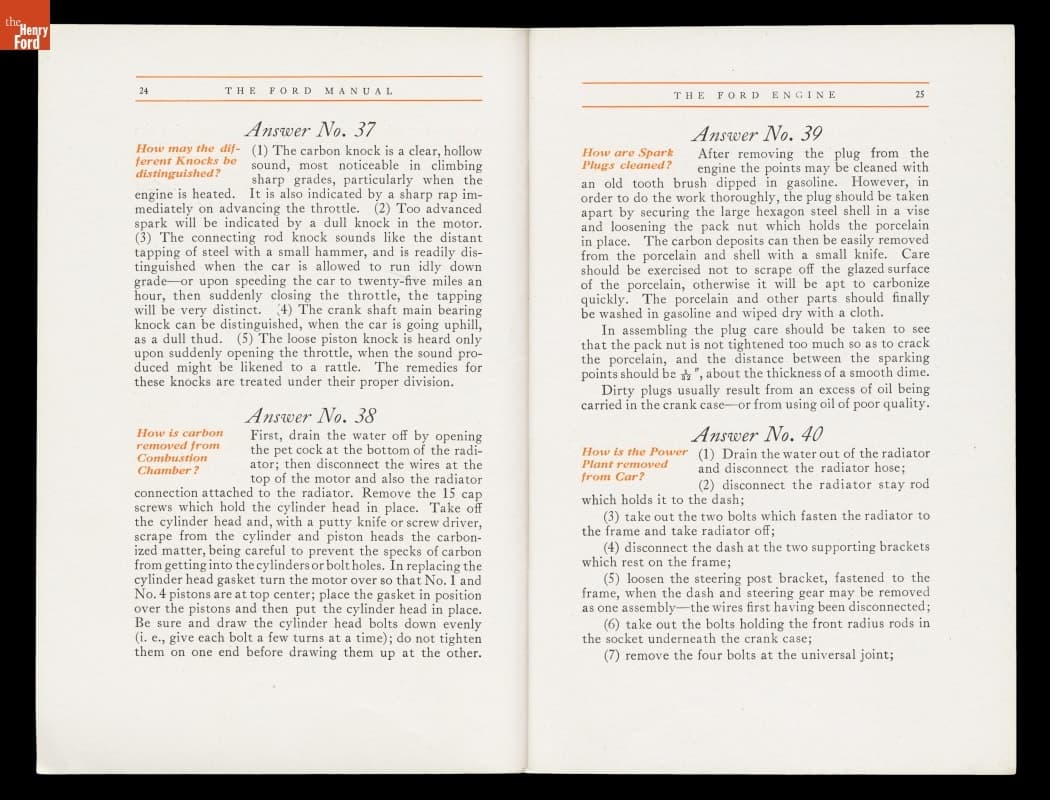 the
Henry
Ford
24 THE FORD MANUAL
Answer No. 37
How may the dif-
ferent Knocks be
distinguished?
(1) The carbon knock is a clear, hollow
sound, most noticeable in climbing
sharp grades, particularly when the
engine is heated. It is also indicated by a sharp rap im-
mediately on advancing the throttle. (2) Too advanced
spark will be indicated by a dull knock in the motor.
(3) The connecting rod knock sounds like the distant
tapping of steel with a small hammer, and is readily dis-
tinguished when the car is allowed to run idly down
grade—or upon speeding the car to twenty-five miles an
hour, then suddenly closing the throttle, the tapping
will be very distinct. (4) The crank shaft main bearing
knock can be distinguished, when the car is going uphill,
as a dull thud. (5) The loose piston knock is heard only
upon suddenly opening the throttle, when the sound pro-
duced might be likened to a rattle. The remedies for
these knocks are treated under their proper division.
Answer No. 38
How is carbon
removed from
Combustion
Chamber?
First, drain the water off by opening
the pet cock at the bottom of the radi-
ator; then disconnect the wires at the
top of the motor and also the radiator
connection attached to the radiator. Remove the 15 cap
screws which hold the cylinder head in place. Take off
the cylinder head and, with a putty knife or screw driver,
scrape from the cylinder and piston heads the carbon-
ized matter, being careful to prevent the specks of carbon
from getting into the cylinders or bolt holes. In replacing the
cylinder head gasket turn the motor over so that No. 1 and
No. 4 pistons are at top center; place the gasket in position
over the pistons and then put the cylinder head in place.
Be sure and draw the cylinder head bolts down evenly
(i. e., give each bolt a few turns at a time); do not tighten
them on one end before drawing them up at the other.
THE FORD ENGINE 25
Answer No. 39
How are Spark
Plugs cleaned?
After removing the plug from the
engine the points may be cleaned with
an old tooth brush dipped in gasoline. However, in
order to do the work thoroughly, the plug should be taken
apart by securing the large hexagon steel shell in a vise
and loosening the pack nut which holds the porcelain
in place. The carbon deposits can then be easily removed
from the porcelain and shell with a small knife. Care
should be exercised not to scrape off the glazed surface
of the porcelain, otherwise it will be apt to carbonize
quickly. The porcelain and other parts should finally
be washed in gasoline and wiped dry with a cloth.
In assembling the plug care should be taken to see
that the pack nut is not tightened too much so as to crack
the porcelain, and the distance between the sparking
points should be 1/32", about the thickness of a smooth dime.
Dirty plugs usually result from an excess of oil being
carried in the crank case—or from using oil of poor quality.
Answer No. 40
How is the Power
Plant removed
from Car?
(1) Drain the water out of the radiator
and disconnect the radiator hose;
(2) disconnect the radiator stay rod
which holds it to the dash;
(3) take out the two bolts which fasten the radiator to
the frame and take radiator off;
(4) disconnect the dash at the two supporting brackets
which rest on the frame;
(5) loosen the steering post bracket, fastened to the
frame, when the dash and steering gear may be removed
as one assembly—the wires first having been disconnected;
(6) take out the bolts holding the front radius rods in
the socket underneath the crank case;
(7) remove the four bolts at the universal joint;